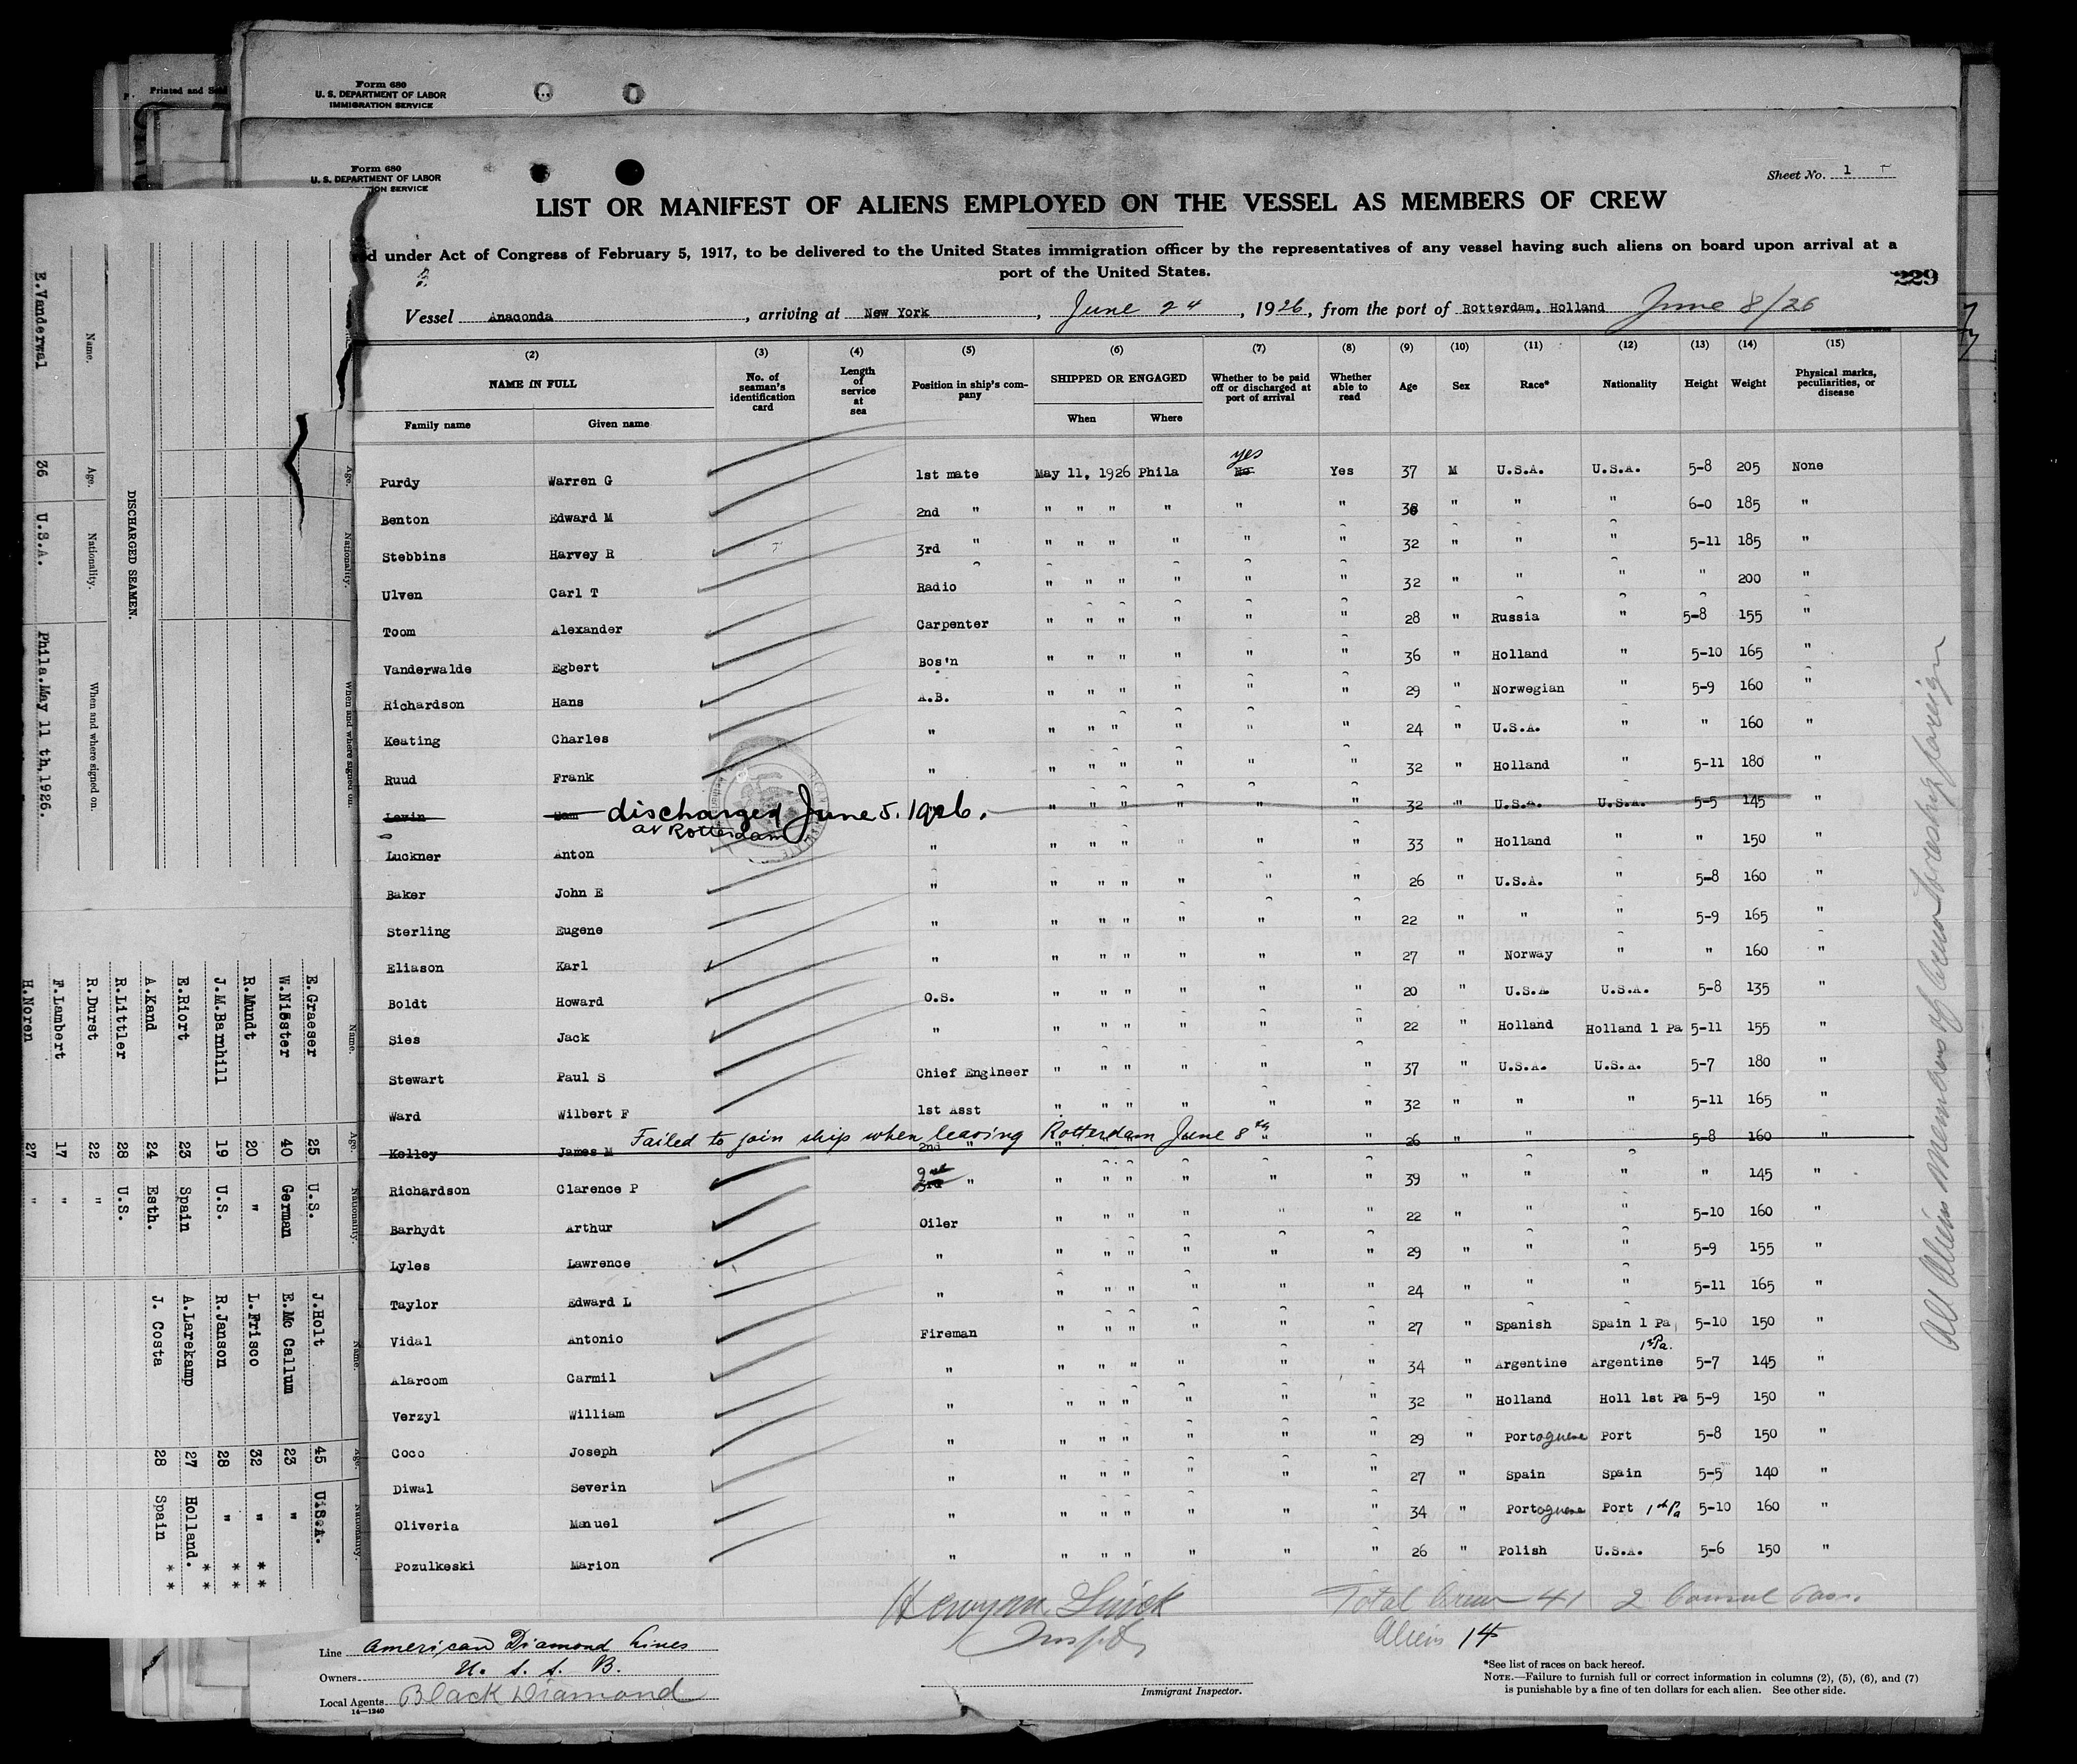 Printed and Sold
Form 680
U. S. DEPARTMENT OF LABOR
IMMIGRATION SERVICE
Form 680
U. S. DEPARTMENT OF LABOR
ION SERVICE
Sheet No. 1
LIST OR MANIFEST OF ALIENS EMPLOYED ON THE VESSEL AS MEMBERS OF CREW
d under Act of Congress of February 5, 1917, to be delivered to the United States immigration officer by the representatives of any vessel having such aliens on board upon arrival at a
port of the United States.
229
Vessel Anaconda, arriving at New York, June 24, 1926, from the port of Rotterdam, Holland June 8/26
(2) (3) (4) (5) (6) (7) (8) (9) (10) (11) (12) (13) (14) (15)
NAME IN FULL No. of seaman's identification card Length of service at sea Position in ship's company SHIPPED OR ENGAGED Whether to be paid off or discharged at port of arrival Whether able to read Age Sex Race* Nationality Height Weight Physical marks, peculiarities, or disease
Family name Given name When Where
yes
Purdy Warren G 1st mate May 11, 1926 Phila No Yes 37 M U.S.A. U.S.A. 5-8 205 None
Benton Edward M 2nd " " " " " " " 38 " " " 6-0 185 "
Stebbins Harvey R 3rd " " " " " " " 32 " " " 5-11 185 "
Ulven Carl T Radio " " " " " " 32 " " " " 200 "
Toom Alexander Carpenter " " " " " " 28 " Russia " 5-8 155 "
Vanderwalde Egbert Bos'n " " " " " " 36 " Holland " 5-10 165 "
Richardson Hans A.B. " " " " " " 29 " Norwegian " 5-9 160 "
Keating Charles " " " " " " " 24 " U.S.A. " " 160 "
Ruud Frank " " " " " " " 32 " Holland " 5-11 180 "
Lewin Sam discharged June 5. 1926. " " " " " " 32 " U.S.A. U.S.A. 5-5 145 "
at Rotterdam
Luckner Anton " " " " " " " 33 " Holland " " 150 "
Baker John E " " " " " " " 26 " U.S.A. " 5-8 160 "
Sterling Eugene " " " " " " " 22 " " " 5-9 165 "
Eliason Karl " " " " " " " 27 " Norway " " 160 "
Boldt Howard O.S. " " " " " " 20 " U.S.A. U.S.A. 5-8 135 "
Sies Jack " " " " " " " 22 " Holland Holland 1 Pa 5-11 155 "
Stewart Paul S Chief Engineer " " " " " " 37 " U.S.A. U.S.A. 5-7 180 "
Ward Wilbert F 1st Asst " " " " " " 32 " " " 5-11 165 "
Failed to join ship when leaving Rotterdam June 8th
Kelley James M 2nd " " " " " " " 26 " " 5-8 160 "
2nd
Richardson Clarence P 3rd " " " " " " " 39 " " " " 145 "
Barhydt Arthur Oiler " " " " " " 22 " " " 5-10 160 "
Lyles Lawrence " " " " " " " 29 " " " 5-9 155 "
Taylor Edward L " " " " " " " 24 " " " 5-11 165 "
Vidal Antonio Fireman " " " " " " 27 " Spanish Spain 1 Pa 5-10 150 "
1st Pa.
Alarcom Carmil " " " " " " " 34 " Argentine Argentine 5-7 145 "
Verzyl William " " " " " " " 32 " Holland Holl 1st Pa 5-9 150 "
Coco Joseph " " " " " " " 29 " Portoguese Port 5-8 150 "
Diwal Severin " " " " " " " 27 " Spain Spain 5-5 140 "
Oliveria Manuel " " " " " " " 34 " Portoguese Port 1st Pa 5-10 160 "
Pozulkeski Marion " " " " " " " 26 " Polish U.S.A. 5-6 150 "
Total Crew 41 2 Consul Pass.
Aliens 14
Line American Diamond Lines
Owners U. S. S. B.
Local Agents Black Diamond
14—1240
Immigrant Inspector.
*See list of races on back hereof.
NOTE.—Failure to furnish full or correct information in columns (2), (5), (6), and (7)
is punishable by a fine of ten dollars for each alien. See other side.
All Alien Members of Crew foreign
DISCHARGED SEAMEN.
Name. Age. Nationality. When and where signed on.
E.Vanderwal 36 U.S.A. Phila.May 11 th.1926.
Age. Nationality. When and where signed on.
Name. Age. Nationality. Name. Age. Nationality.
E.Graeser 25 U.S. J.Holt 45 U.S.A.
W.Nister 40 German E.Mc Callum 23 "
R.Mundt 20 " L.Frisco 32 " * *
J.M.Barnhill 19 U.S. R.Janson 28 " * *
E.Riort 23 Spain A.Larekamp 27 Holland. * *
A.Kand 24 Esth. J. Costa 28 Spain * *
R.Littler 28 U.S.
R.Durst 22 "
F.Lambert 17 "
H.Noren 27 "